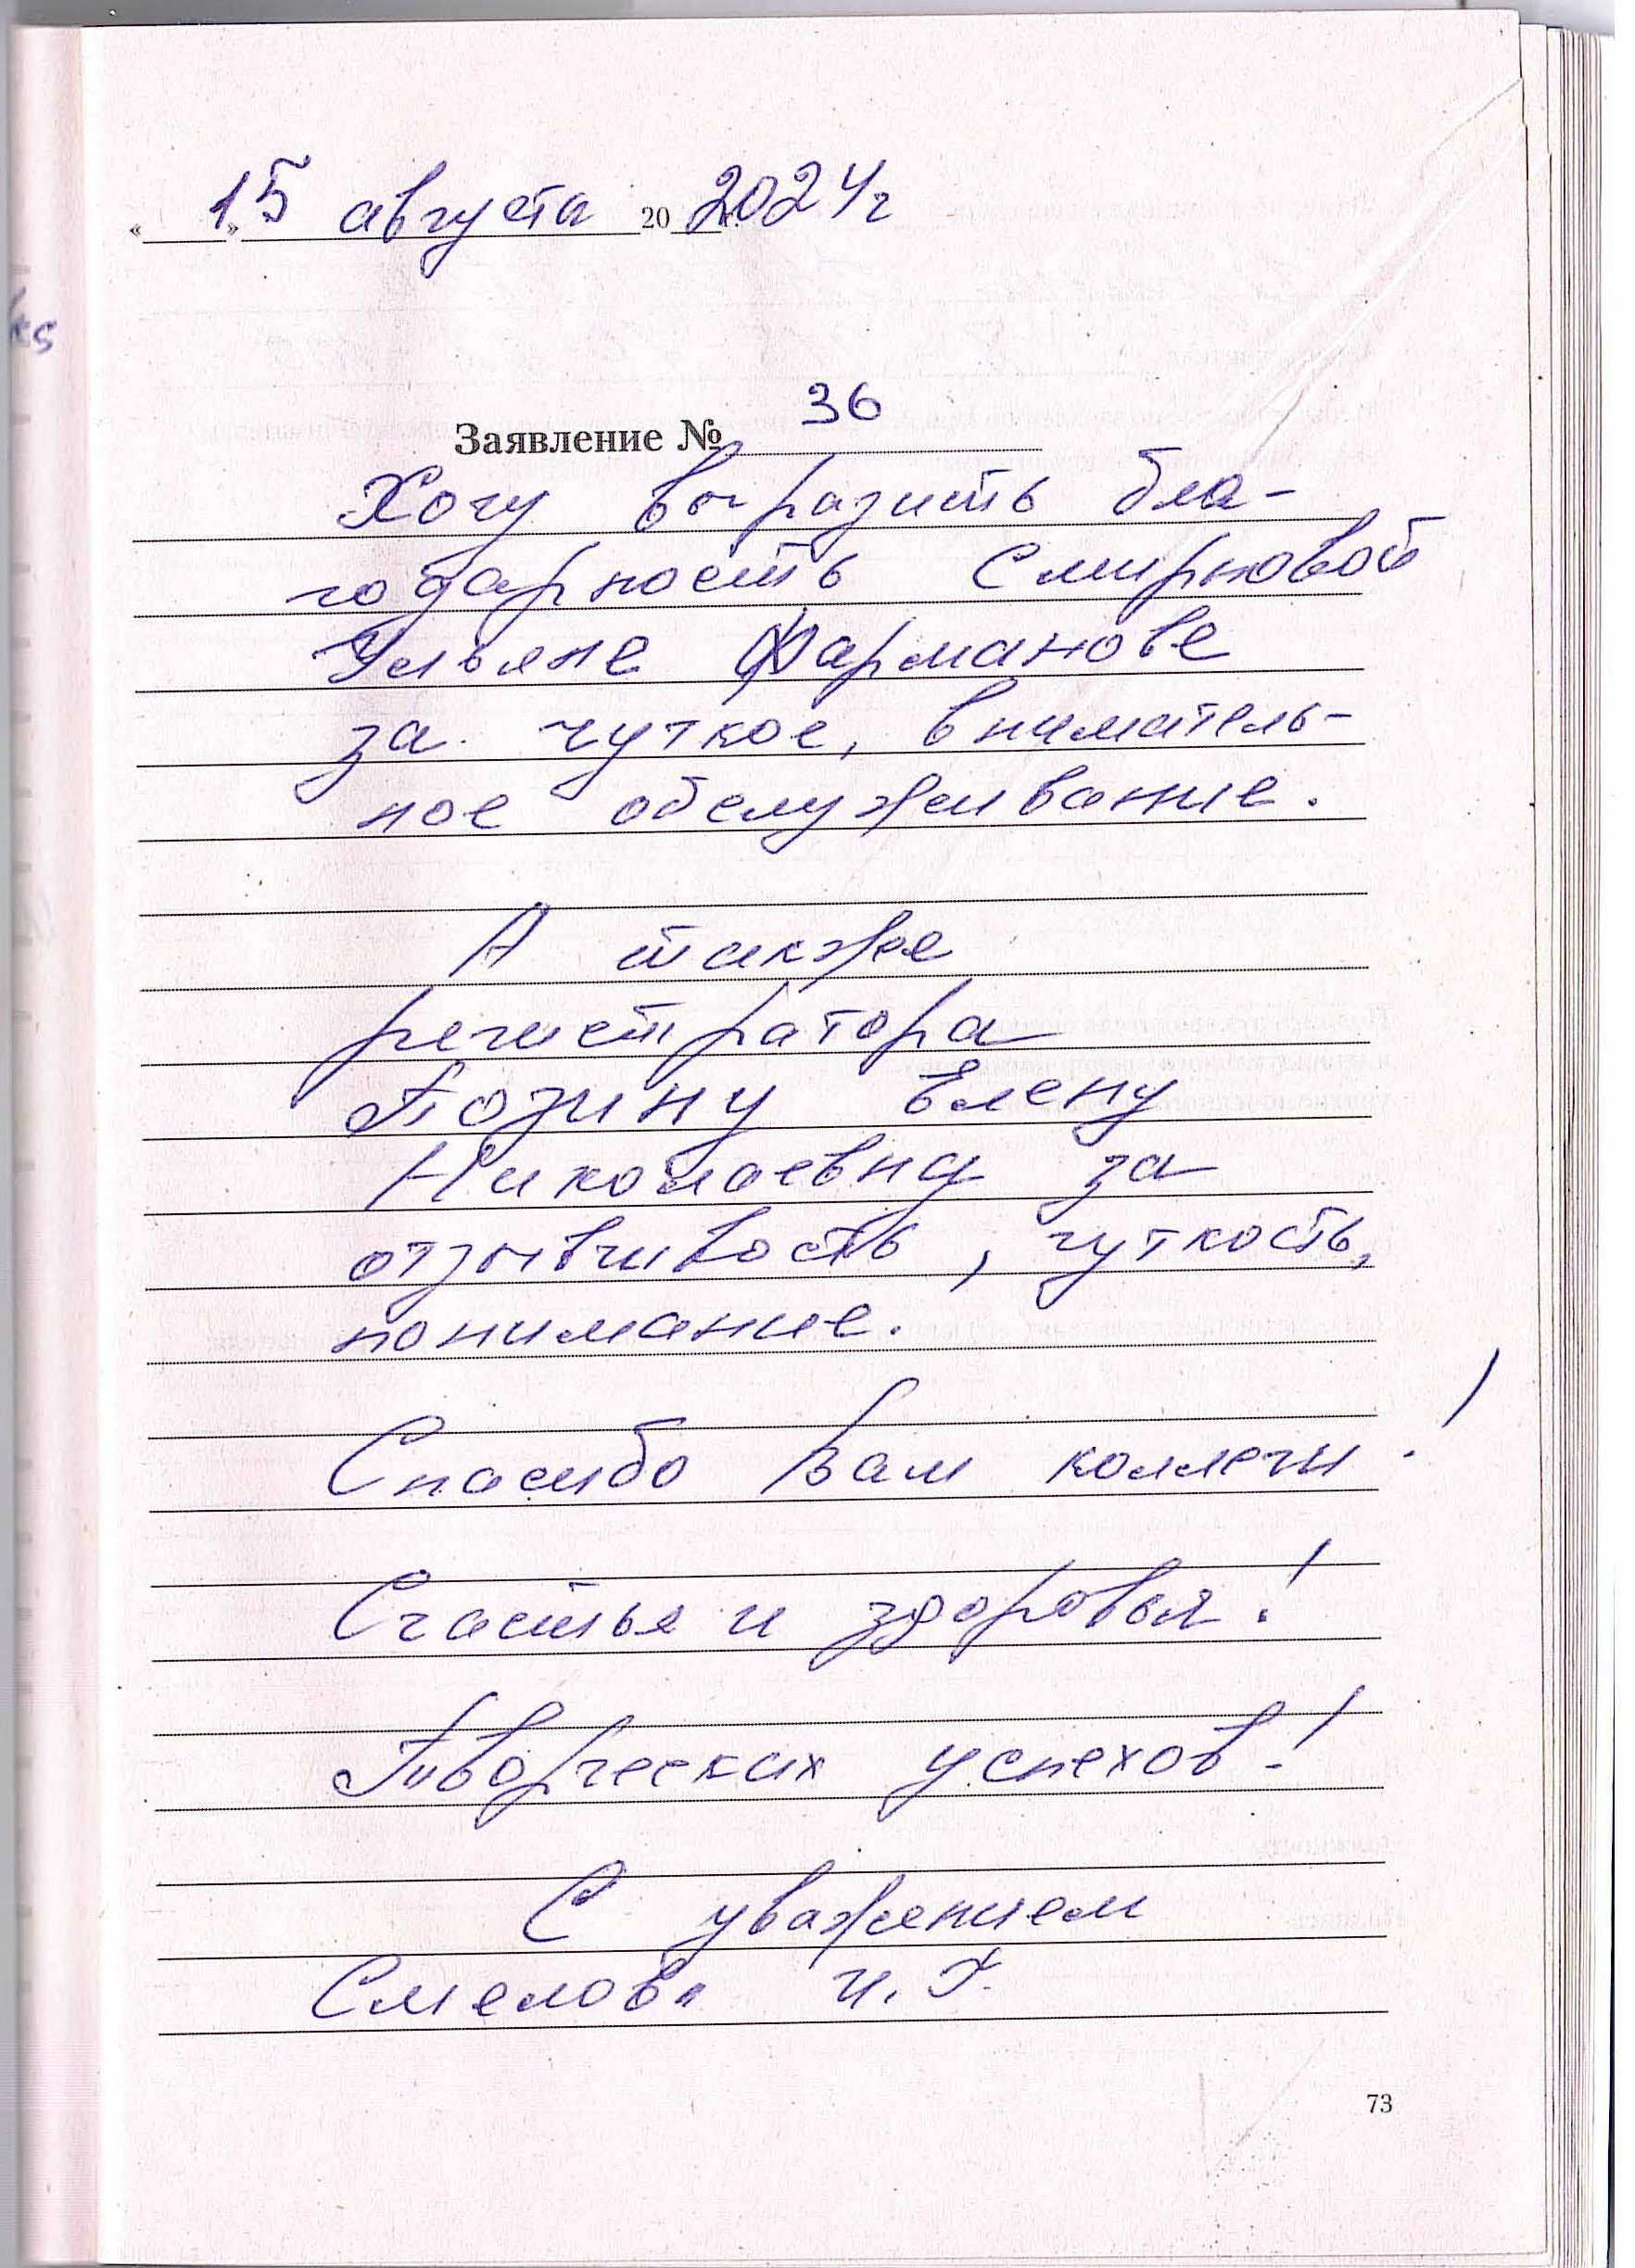 « 15 » августа 20 2024г
Заявление № 36
Хочу выразить бла-
годарность Смирновой
Ульяне Фарманове
за чуткое, вниматель-
ное обслуживание.
А также
регистратора
Позину Елену
Николаевну за
отзывчивость, чуткость,
понимание.
Спасибо Вам коллеги!
Счастья и здоровья!
Творческих успехов!
С уважением
Смелова И. Г.
73